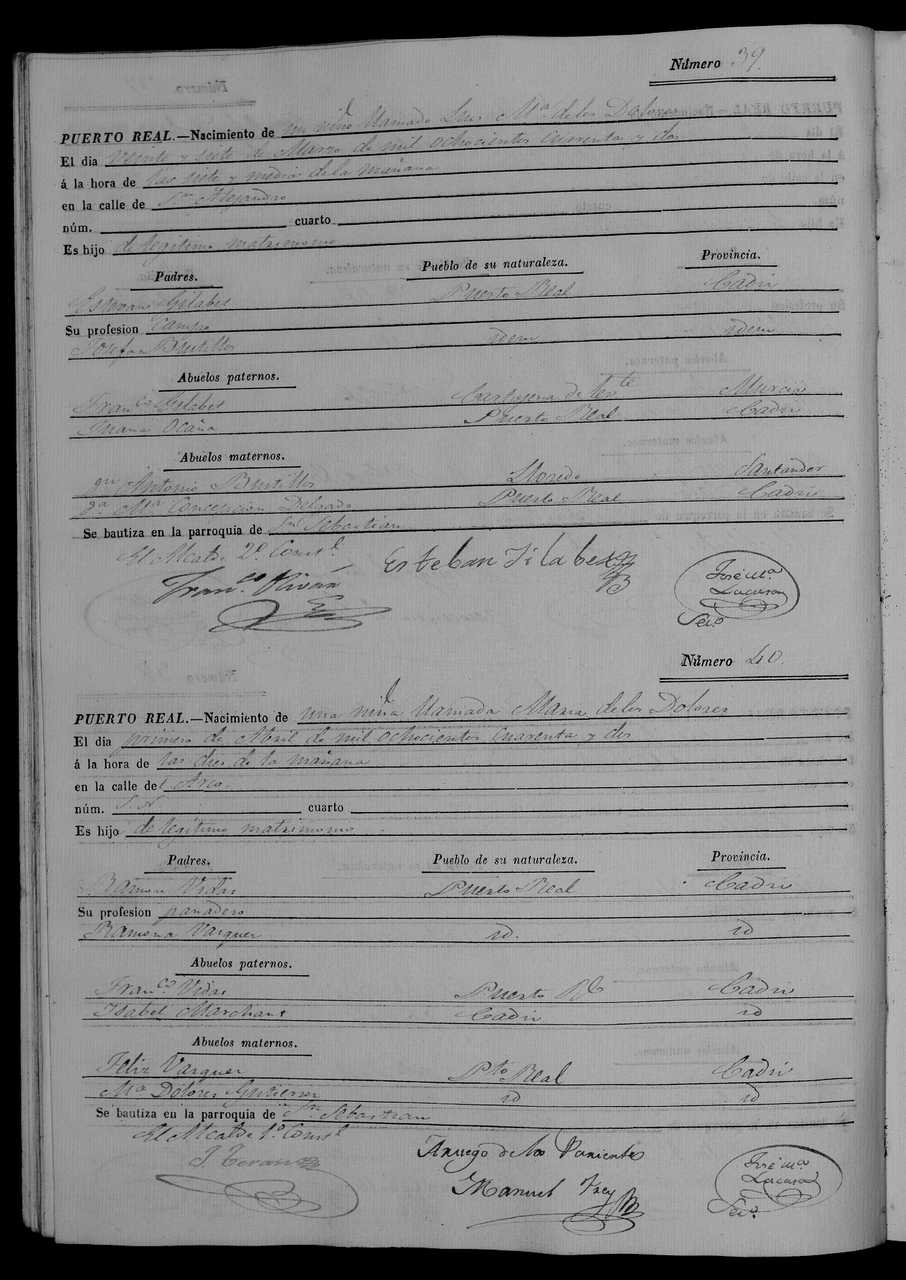 Número 39.
PUERTO REAL.—Nacimiento de un niño llamado Luis Mª de los Dolores
El dia veinte y siete de Marzo de mil ochocientos cuarenta y dos
á la hora de las siete y media de la mañana
en la calle de Sn Alejandro
núm. cuarto
Es hijo de legitimo matrimonio
Padres. Pueblo de su naturaleza. Provincia.
Esteban Gilabert Puerto Real Cadiz
Su profesion Campo
Josefa Bustillos idem idem
Abuelos paternos.
Franco Gilabert Cartagena de Levte Murcia
Juana Ocaña Puerto Real Cadiz
Abuelos maternos.
Antonio Bustillos Santander
Mª Concepcion Delgado Puerto Real Cadiz
Se bautiza en la parroquia de Sn Sebastian
El Alcalde 2º Constl Esteban Jilabert
Franco José Mª
Lacasa
Seco
Número 40.
PUERTO REAL.—Nacimiento de una niña llamada Maria de los Dolores
El dia primero de Abril de mil ochocientos cuarenta y dos
á la hora de las dies de la mañana
en la calle del Arco.
núm. S.N. cuarto
Es hijo de legitimo matrimonio
Padres. Pueblo de su naturaleza. Provincia.
Ramon Vidal Puerto Real Cadiz
Su profesion panadero
Ramona Vazquez id. id
Abuelos paternos.
Franco Vidal Puerto Rl Cadiz
Isabel Cadiz id
Abuelos maternos.
Feliz Vazquez Pto Real Cadiz
Mª Dolores Gutierrez id id
Se bautiza en la parroquia de Sn Sebastian
El Alcalde 1º Constl Aruego de los Parientes
J. Teran Manuel Frey José Mª
Lacasa
Seco